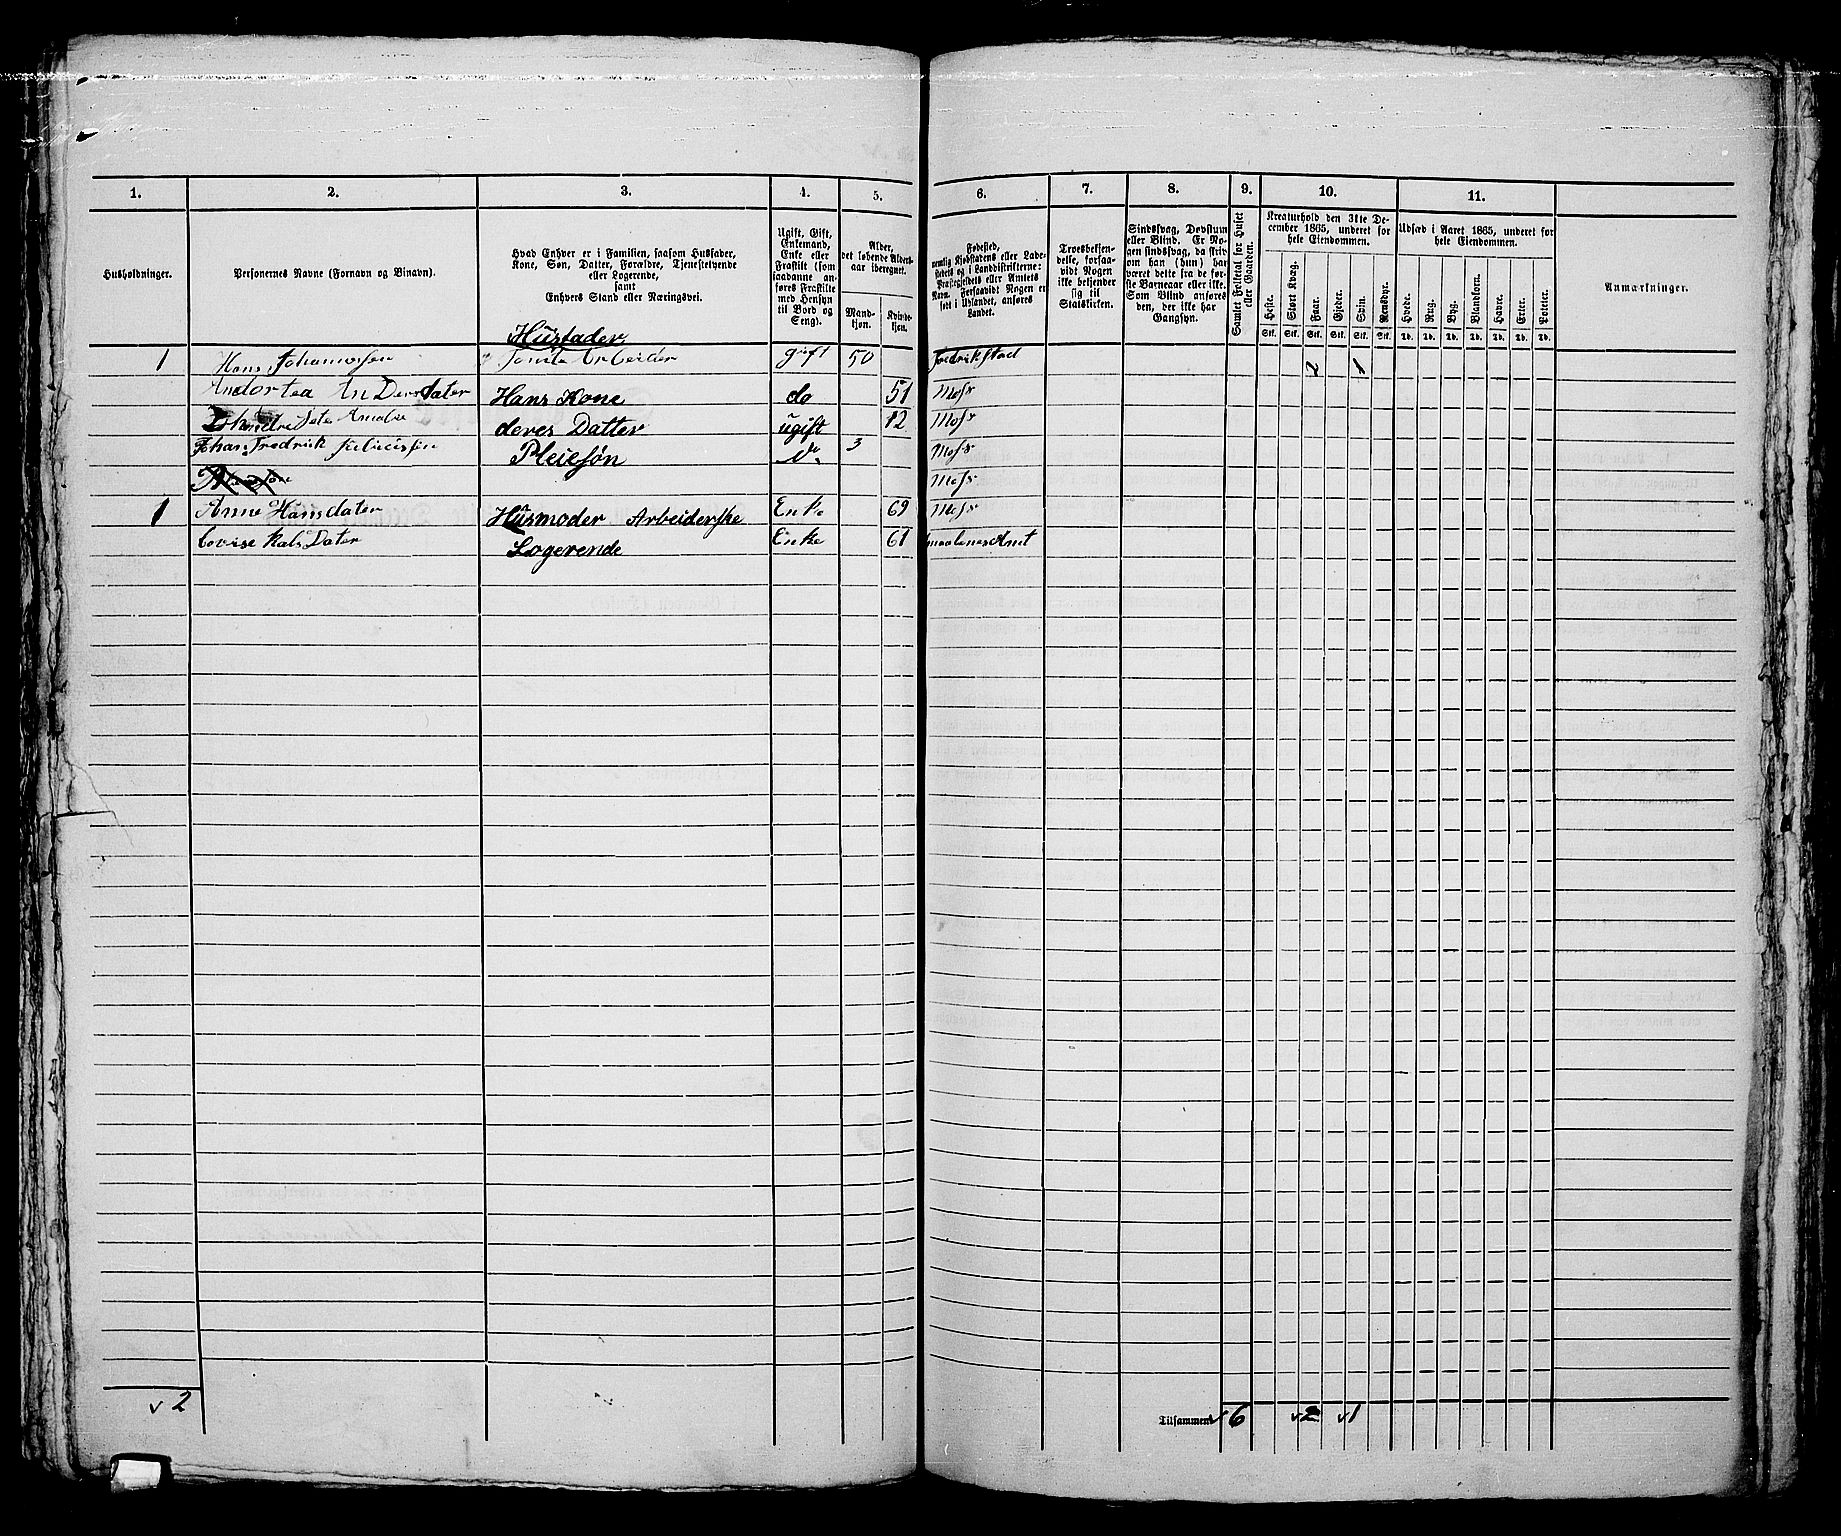 1. 2. 3. 4. 5. 6. 7. 8. 9. 10. 11.
Husholdninger.
Personernes Navne (Fornavn og Binavn).
Hvad Enhver er i Familien, saasom Husfader,
Kone, Søn, Datter, Forældre, Tjenestetyende
eller Logerende,
samt
Enhvers Stand eller Næringsvei.
Ugift, Gift,
Enkemand,
Enke eller
Fraskilt (som
saadanne an-
føres Fraskilte
med Hensyn
til Bord og
Seng).
Alder,
det løbende Alders-
aar iberegnet.
Mand-
kjøn.
Kvinde-
kjøn.
Fødested,
nemlig Kjøbstadens eller Lade-
stedets og i Landdistrikterne:
Præstegjeldets eller Amtets
Navn. Forsaavidt Nogen er
født i Udlandet, anføres
Landet.
Troesbekjen-
delse, forsaa-
vidt Nogen
ikke bekjender
sig til
Statskirken.
Sindssvag, Døvstum
eller Blind. Er No-
gen sindssvag, da skriv
om han (hun) har
været dette fra de før-
ste Barneaar eller ikke.
Som Blind anføres
den, der ikke har
Gangsyn.
Samlet Folketal for Huset
eller Gaarden.
Kreaturhold den 31te De-
cember 1865, underet for
hele Eiendommen.
Heste. Stort Kvæg. Faar. Gjeder. Svin. Rensdyr.
Stk. Stk. Stk. Stk. Stk. Stk.
Udsæd i Aaret 1865, underet for
hele Eiendommen.
Hvede. Rug. Byg. Blandkorn. Havre. Erter. Poteter.
Td. Td. Td. Td. Td. Td. Td.
Anmærkninger.
Husfader
1 Hans Johannessen Tomte Arbeider gift 50 Fredrikstad 2 1
Andortea AnDersdater Hans Kone do 51 Moss
Amalie deres Datter ugift 12 Moss
Johan Fredrik Pleiesøn do 3 Moss
Moss
1 Anne Hansdater Husmoder Arbeiderske Enke 69 Moss
Lovise Kals Dater Logerende Enke 61 Smaalenes Amt
v 2
Tilsammen v 6 v 2 v 1